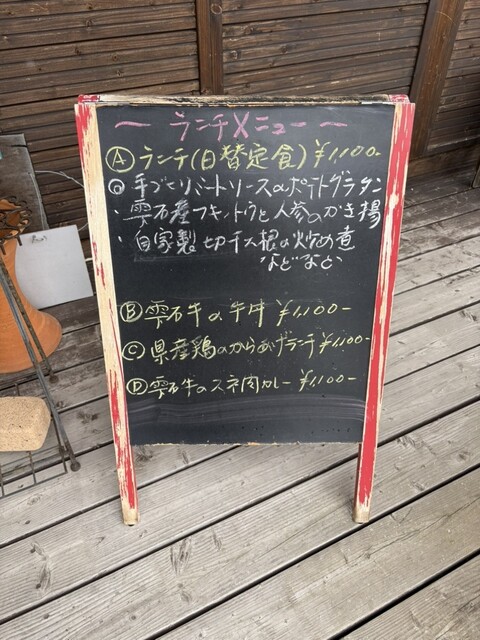 ー ランチメニュー ー
Ⓐ ランチ(日替定食) ¥1,100-
◎ 手づくりミートソースのポテトグラタン
・雫石産フキノトウと人参のかき揚
・自家製切干大根の炒め煮
などなど
Ⓑ 雫石牛の牛丼 ¥1,100-
Ⓒ 県産鶏のからあげランチ ¥1,100-
Ⓓ 雫石牛のスネ肉カレー ¥1,100-